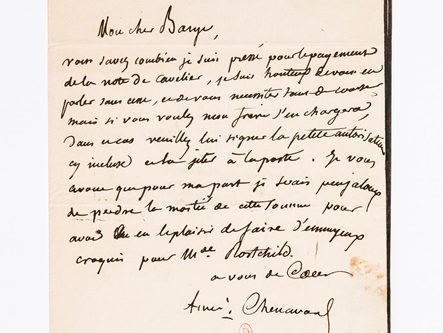 Mon cher Barye,
vous savez combien je suis pressé pour le payement
de la note de cavelier, je suis honteux de vous en
parler sans cesse, et de vous necessiter tant de courses
mais si vous voulez mon frère s'en chargera,
dans ce cas veuillez lui signer la petite autorisation
cy incluse et la jeter à la poste. Je vous
avoue que pour ma part je serais peu jaloux
de perdre la moitié de cette somme pour
avoir eu le plaisir de faire d'ennuyeux
croquis pour Mde Rostchild.
a vous de Coeur
Aimé Chenavard